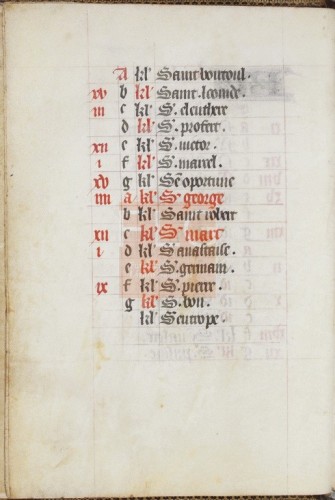 A kl' Saint bontoul.
xv b kl' Saint. leonide.
iii c kl' S. eleuthere
d kl' S. profert.
xii e kl' S. victor.
i f kl' S. marcel.
xv g kl' Se oportune
iiii a kl' S. george
b kl' Saint robert
xii c kl' S. marc
i d kl' S. anastaise.
e kl' S. germain.
ix f kl' S. pierre.
g kl' S. bon.
kl' S eutrope.